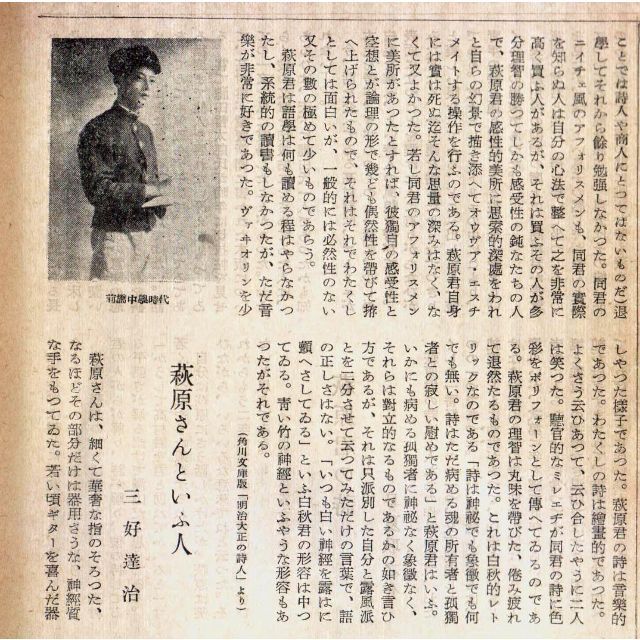 ことでは詩人や商人にとつてはないものだ)退
學してそれから餘り勉强しなかつた。同君の
ニイチェ風のアフォリスメンも、同君の實際
を知らぬ人は自分の心法で整へて之を非常に
高く買ふ人があるが、それは買ふその人が多
分理智の勝つてしかも感受性の鈍なたちの人
で、萩原君の感性的美所に思索的深處をわれ
と自らの幻景で描き添へてオウヴア・エスチ
メイトする操作を行ふのである。萩原君自身
には實は死ぬ迄そんな思量の深みはなく、な
くて又よかつた。若し同君のアフォリスメン
に美所があつたとすれば、彼獨自の感受性と
空想とが論理の形で幾ども偶然性を帶びて捺
へ上げられたもので、それはそれでわたくし
としては面白いが、一般的には必然性のない
又その數の極めて少いものであらう。
萩原君は語學は何も讀める程はやらなかつ
たし、系統的の讀書もしなかつたが、ただ音
樂が非常に好きであつた。ヴァヰオリンを少
前橋中學時代
しやつた樣子であつた。萩原君の詩は音樂的
であつた。わたくしの詩は繪畫的であつた。
よくさう云ひあつて、云ひ合したやうに二人
は笑つた。聽官的なミレエヂが同君の詩に色
彩をポリフォーンとして傳へてゐるのであ
る。萩原君の理智は丸味を帶びた、倦み疲れ
て退然たるものであつた。これは白秋的レト
リックなのである「詩は神祕でも象徵でも何
でも無い。詩はただ病める魂の所有者と孤獨
者との寂しい慰めである」と萩原君はいふ。
いかにも病める孤獨者に神祕なく象徵なく、
それらは對立的なものであるかの如き言ひ
方であるが、それは只派別した自分と露風派
とを二分させて云つてみただけの言葉で、語
の正しさはない。「いつも白い神經を露はに
顫へさしてゐる」といふ白秋君の形容は中つ
てゐる。青い竹の神經といふやうな形容もあ
つたがそれである。
(角川文庫版「明治大正の詩人」より)
萩原さんといふ人
三好達治
萩原さんは、細くて華奢な指のそろつた、
なるほどその部分だけは器用さうな、神經質
な手をもつてゐた。若い頃ギターを喜んだ器